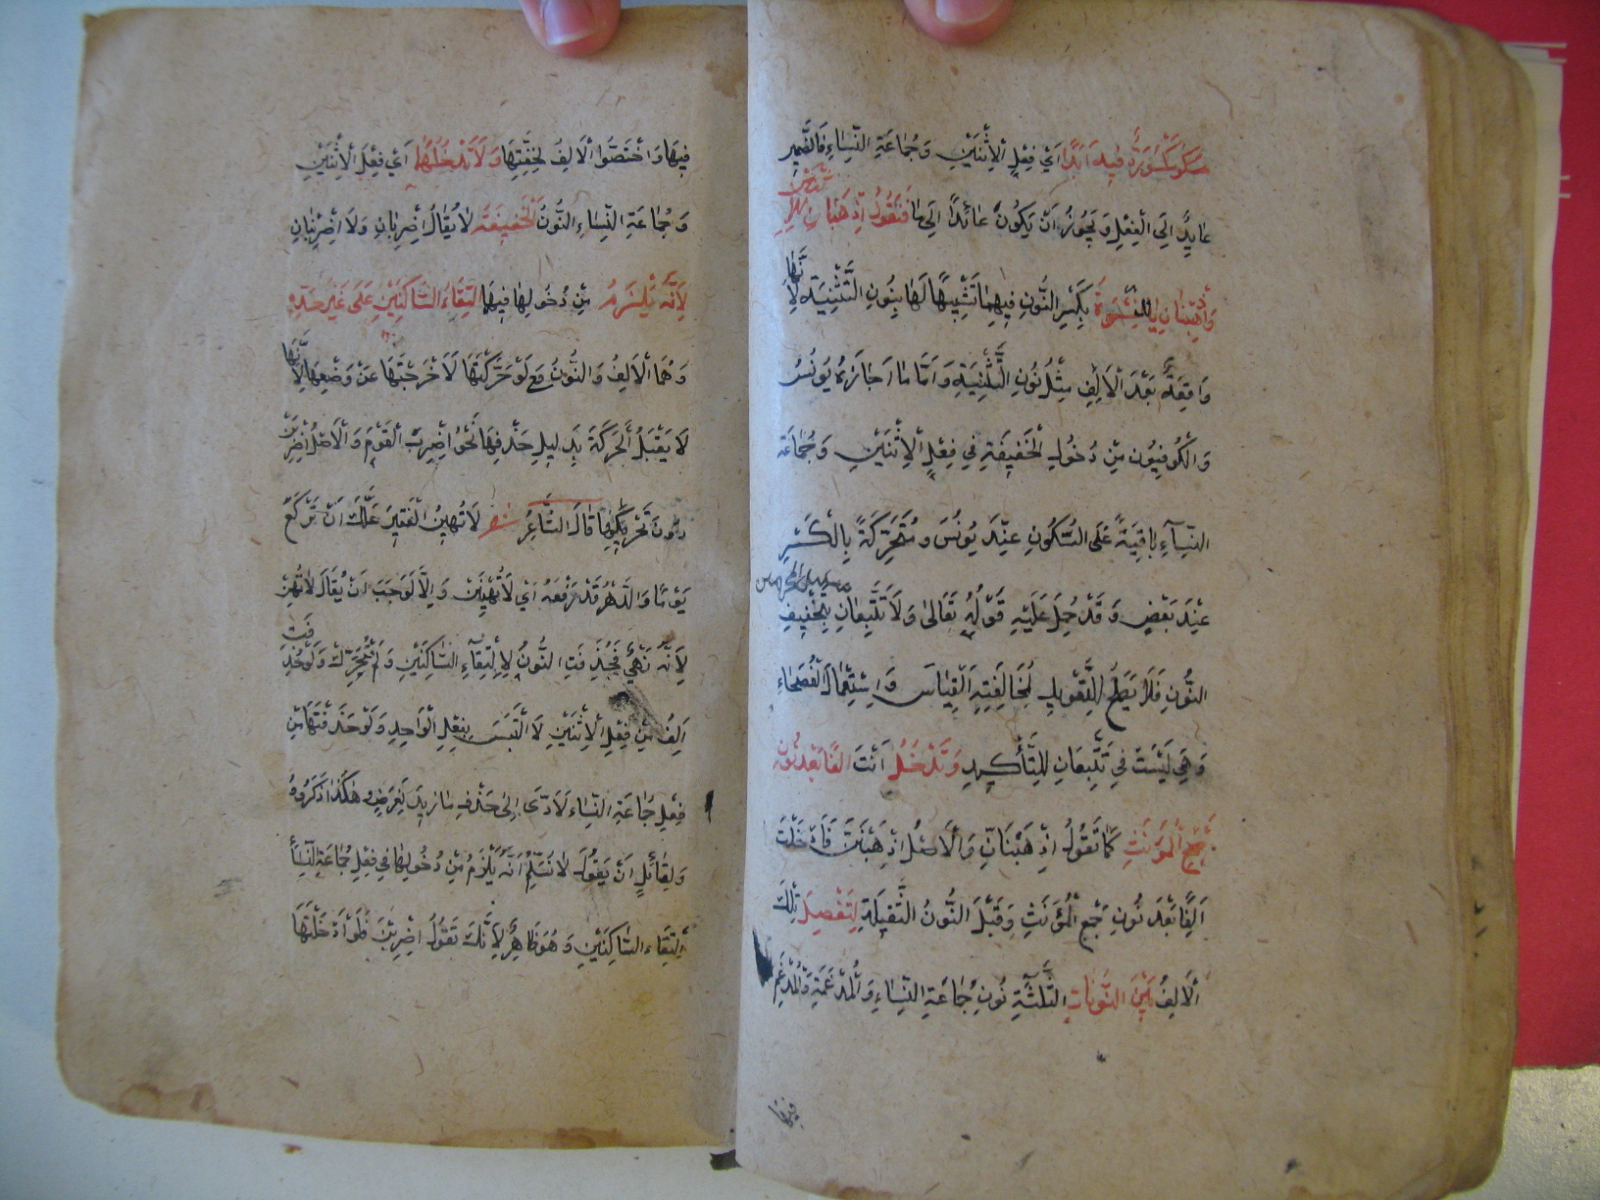 مكسورة فيه ابدا اي في فعل الاثنين وجماعة النساء فالضمير
عايد الى الفعل ويجوز ان يكون عائدا الى ما فتقول اذهبان للاثنين
واذهبنان للنسوة بكسر النون فيهما تشبيها لها بنون التثنية لانها
واقعة بعد الالف مثل نون التثنية واما ما اجازه يونس
والكوفيون من دخول الخفيفة في فعل الاثنين وجماعة
النساء باقية على السكون عند يونس ومتحركة بالكسر
عند بعض وقد حمل عليه قوله تعالى ولا تتبعان بتخفيف
النون فلا يصلح للتعويل لمخالفته القياس واستعمال الفصحاء
وهي ليست في تتبعان للتأكيد وتدخل انت الفا بعد نون
جمع المؤنث كما تقول اذهبنان والاصل اذهبنن فادخلت
الفا بعد نون جمع المؤنث وقبل النون الثقيلة لتفصل تلك
الالف بين النونات الثلثة نون جماعة النساء والمدغمة والمدغم
فيها
فيها واختصوا الالف لخفتها ولا تدخلها اي فعل الاثنين
وجماعة النساء النون الخفيفة لا يقال اضربان ولا اضربنان
لانه يلزم من دخولها فيها التقاء الساكنين على غير حده
وهما الالف والنون مع لو حركتها لاخرجتها عن وضعها لانها
لا يقبل الحركة بدليل حذفها نحو اضرب القوم والاصل اضربن
دون تحريكها قال الشاعر شعر لا تهين الفقير علك ان تركع
يوما والدهر قد رفعه اي لا تهينن والا لوجب ان يقال لا تهن
لانه نهي فحذفت النون لالتقاء الساكنين ولم تحرك ولو حذفت
الف من فعل الاثنين لالتبس بفعل الواحد ولو حذفتها من
فعل جماعة النساء لادى الى حذف ما زيد لغرض هكذا ذكروه
ولقائل ان يقول لا نسلم انه يلزم من دخولها في فعل جماعة النساء
التقاء الساكنين وهو ظاهر لانك تقول اضربن فلو ادخلتها